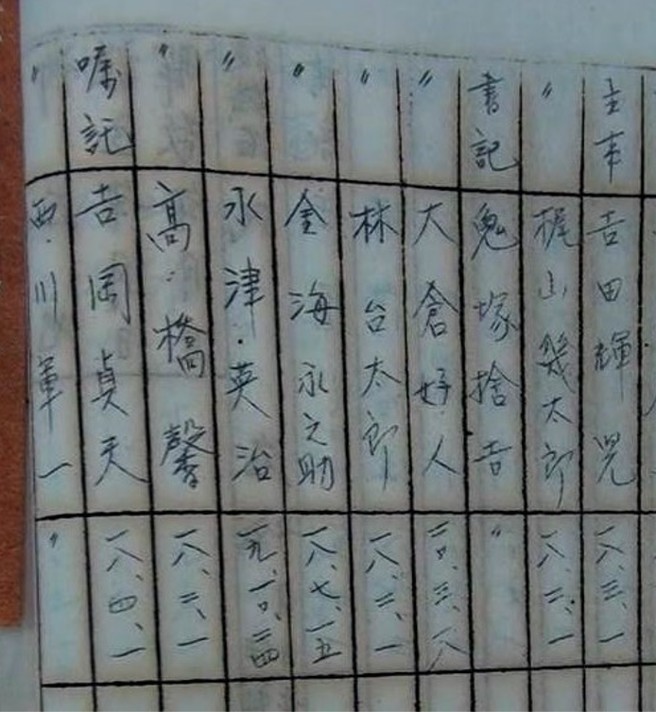 主事 吉田輝児 一八、三、一
〃 梶山幾太郎 一八、二、一
書記 鬼塚捨吉 〃
〃 大倉好人 一〇、三、一八
〃 林台太郎 一八、二、一
〃 金海永之助 一八、七、一五
〃 永津英治 一九、一〇、二四
〃 高橋馨 一八、二、一
嘱託 吉岡貞夫 一八、四、一
〃 西川軍一 〃